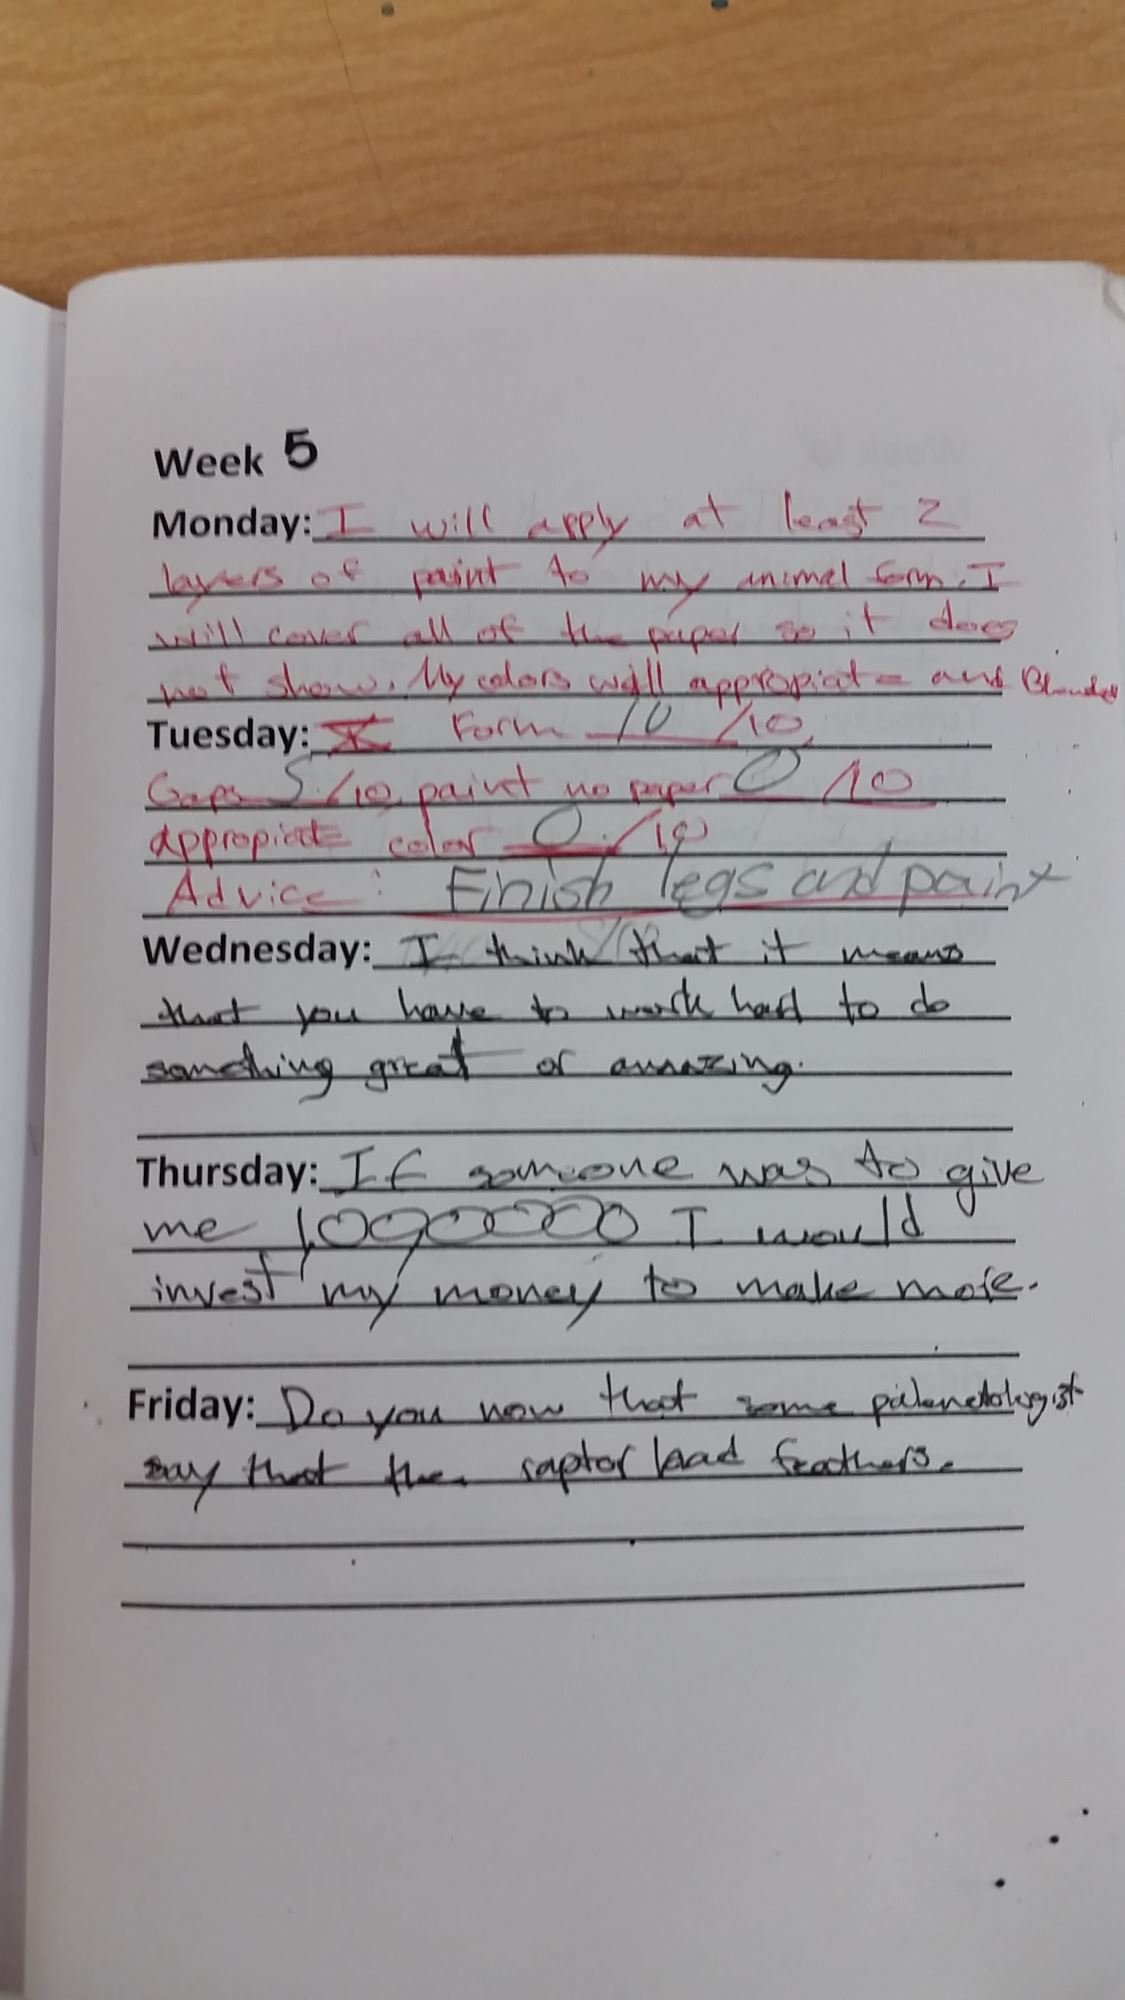 Week 5
Monday: I will apply at least 2
layers of paint to my animal form. I
will cover all of the paper so it does
not show. My colors will appropiate and Blended
Tuesday: Form 10 /10,
Gaps 5 /10, paint no paper 0 /10
appropiate color 0 /10
Advice: Finish legs and paint
Wednesday: I think that it means
that you have to work hard to do
something great or amazing.
Thursday: If someone was to give
me 1,000,000 I would
invest my money to make more.
Friday: Do you now that some palenotologist
say that the raptor had feathers.